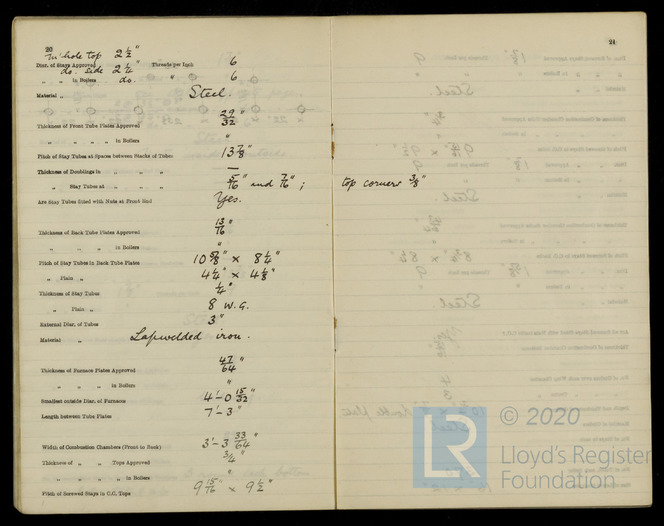 20
m'hole top 2 1/2"
Diar. of Stays Approved do. side 2 1/4" Threads per Inch 6
„ „ in Boilers do. „ 6
Material „ Steel.
Thickness of Front Tube Plates Approved 29/32"
„ „ „ in Boilers "
Pitch of Stay Tubes at Spaces between Stacks of Tubes 13 7/8"
Thickness of Doublings in „ „ „ —
„ Stay Tubes at „ „ „ 5/16" and 7/16" ; top corners 3/8"
Are Stay Tubes fitted with Nuts at Front End Yes.
Thickness of Back Tube Plates Approved 13/16"
„ „ „ in Boilers "
Pitch of Stay Tubes in Back Tube Plates 10 5/8" x 8 1/4"
„ Plain „ 4 1/4" x 4 1/8"
Thickness of Stay Tubes 1/4"
„ Plain „ 8 W.G.
External Diar. of Tubes 3"
Material „ Lapwelded iron.
Thickness of Furnace Plates Approved 47/64"
„ „ „ in Boilers "
Smallest outside Diar. of Furnaces 4'-0 15/32"
Length between Tube Plates 7'-3"
Width of Combustion Chambers (Front to Back) 3'-3 33/64"
Thickness of „ „ Tops Approved 3/4"
„ „ „ „ in Boilers "
Pitch of Screwed Stays in C.C. Tops 9 15/16" x 9 1/2"
21
© 2020
LR
Lloyd's Register
Foundation